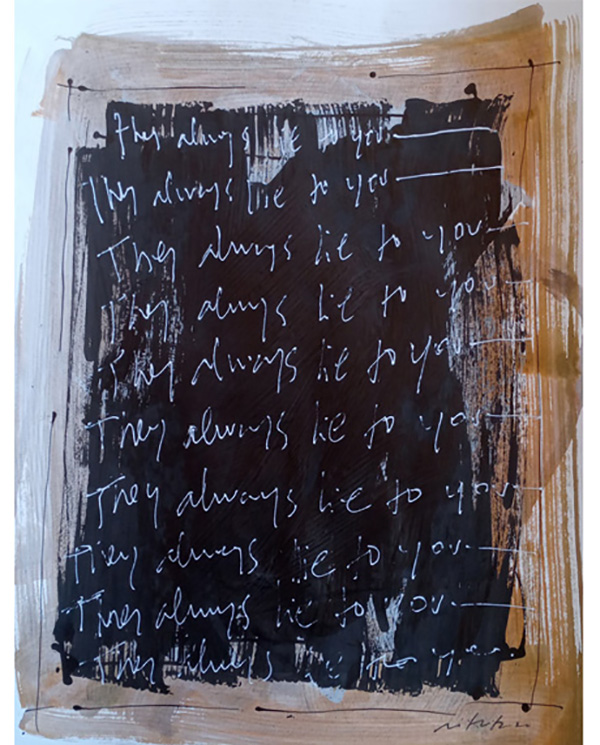 They always lie to you
They always lie to you
They always lie to you
They always lie to you
They always lie to you
They always lie to you
They always lie to you
They always lie to you
They always lie to you
They always lie to you.